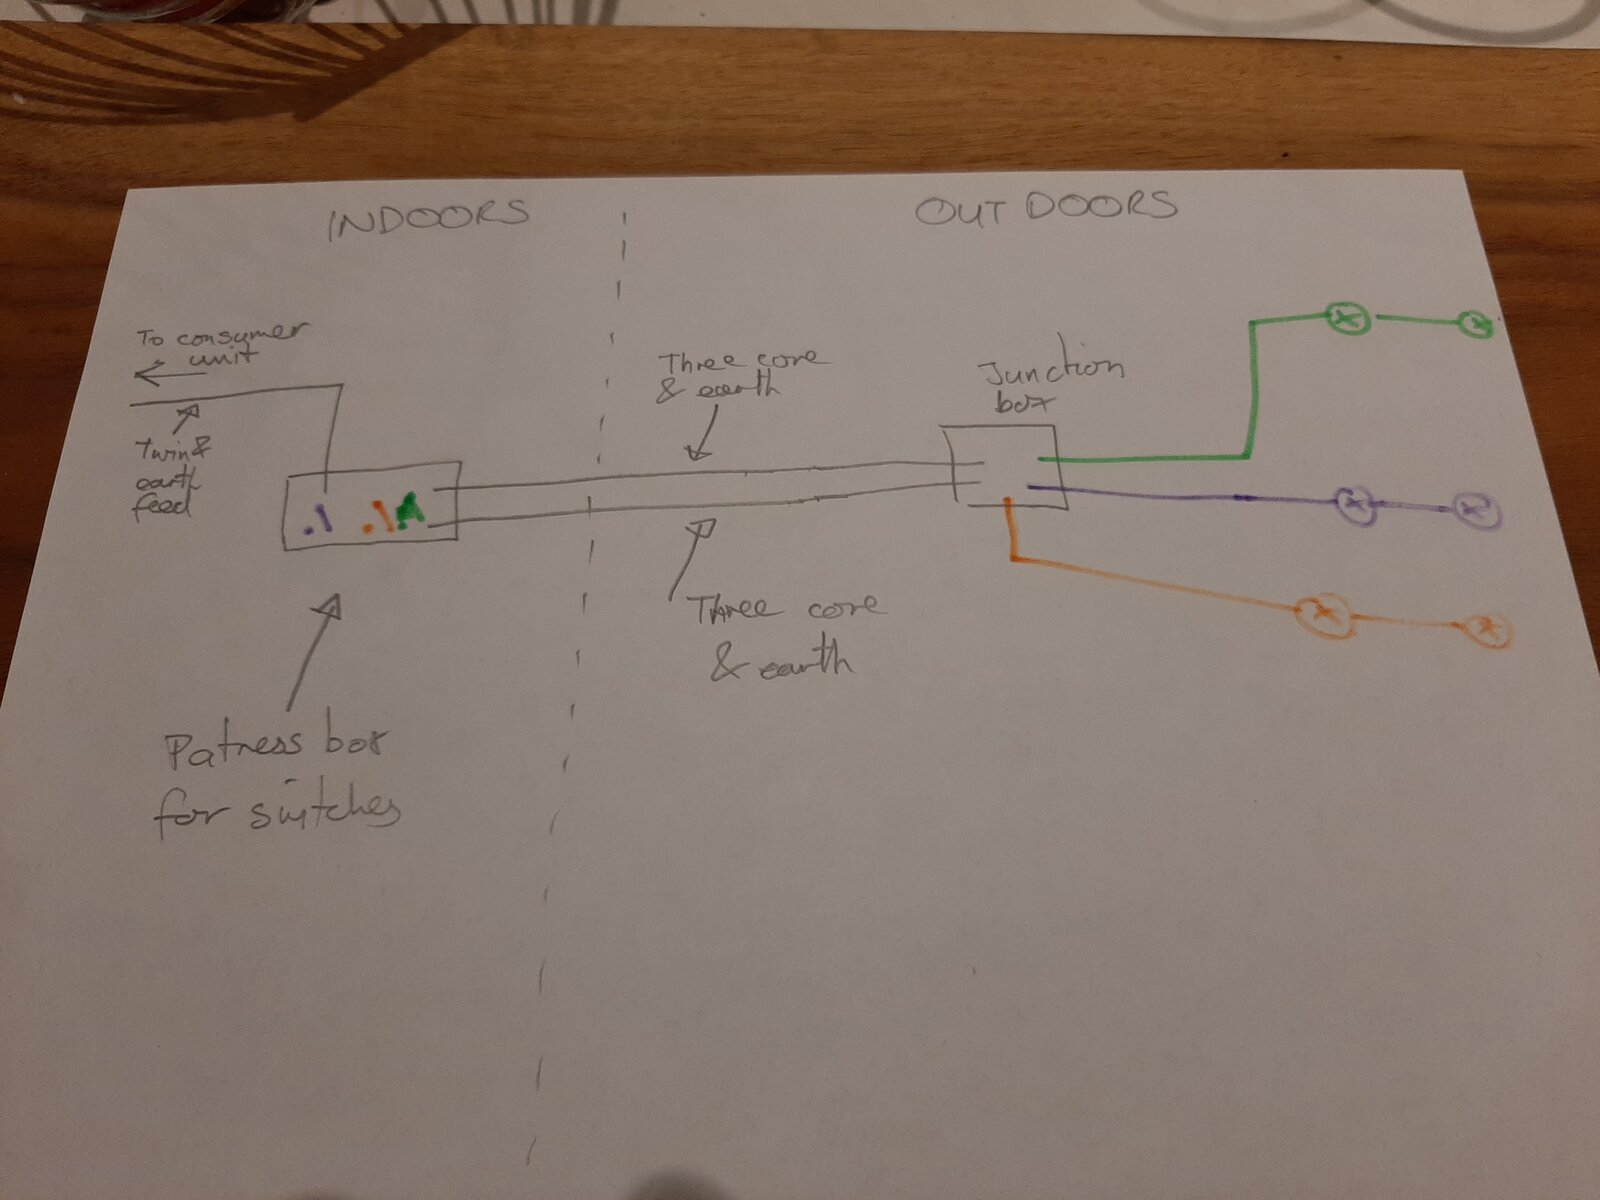 INDOORS
OUTDOORS
To consumer
unit
Twin &
earth
feed
Three core
& earth
Junction
box
Three core
& earth
Patress box
for switches